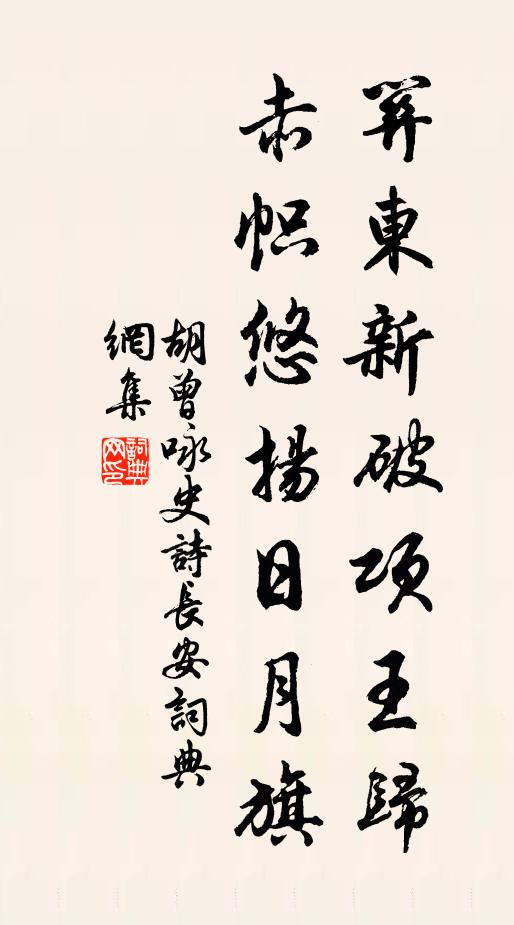 關東新破項王歸
赤幟悠揚日月旗
胡曾咏史詩長安詞典
網集
詞典
网印